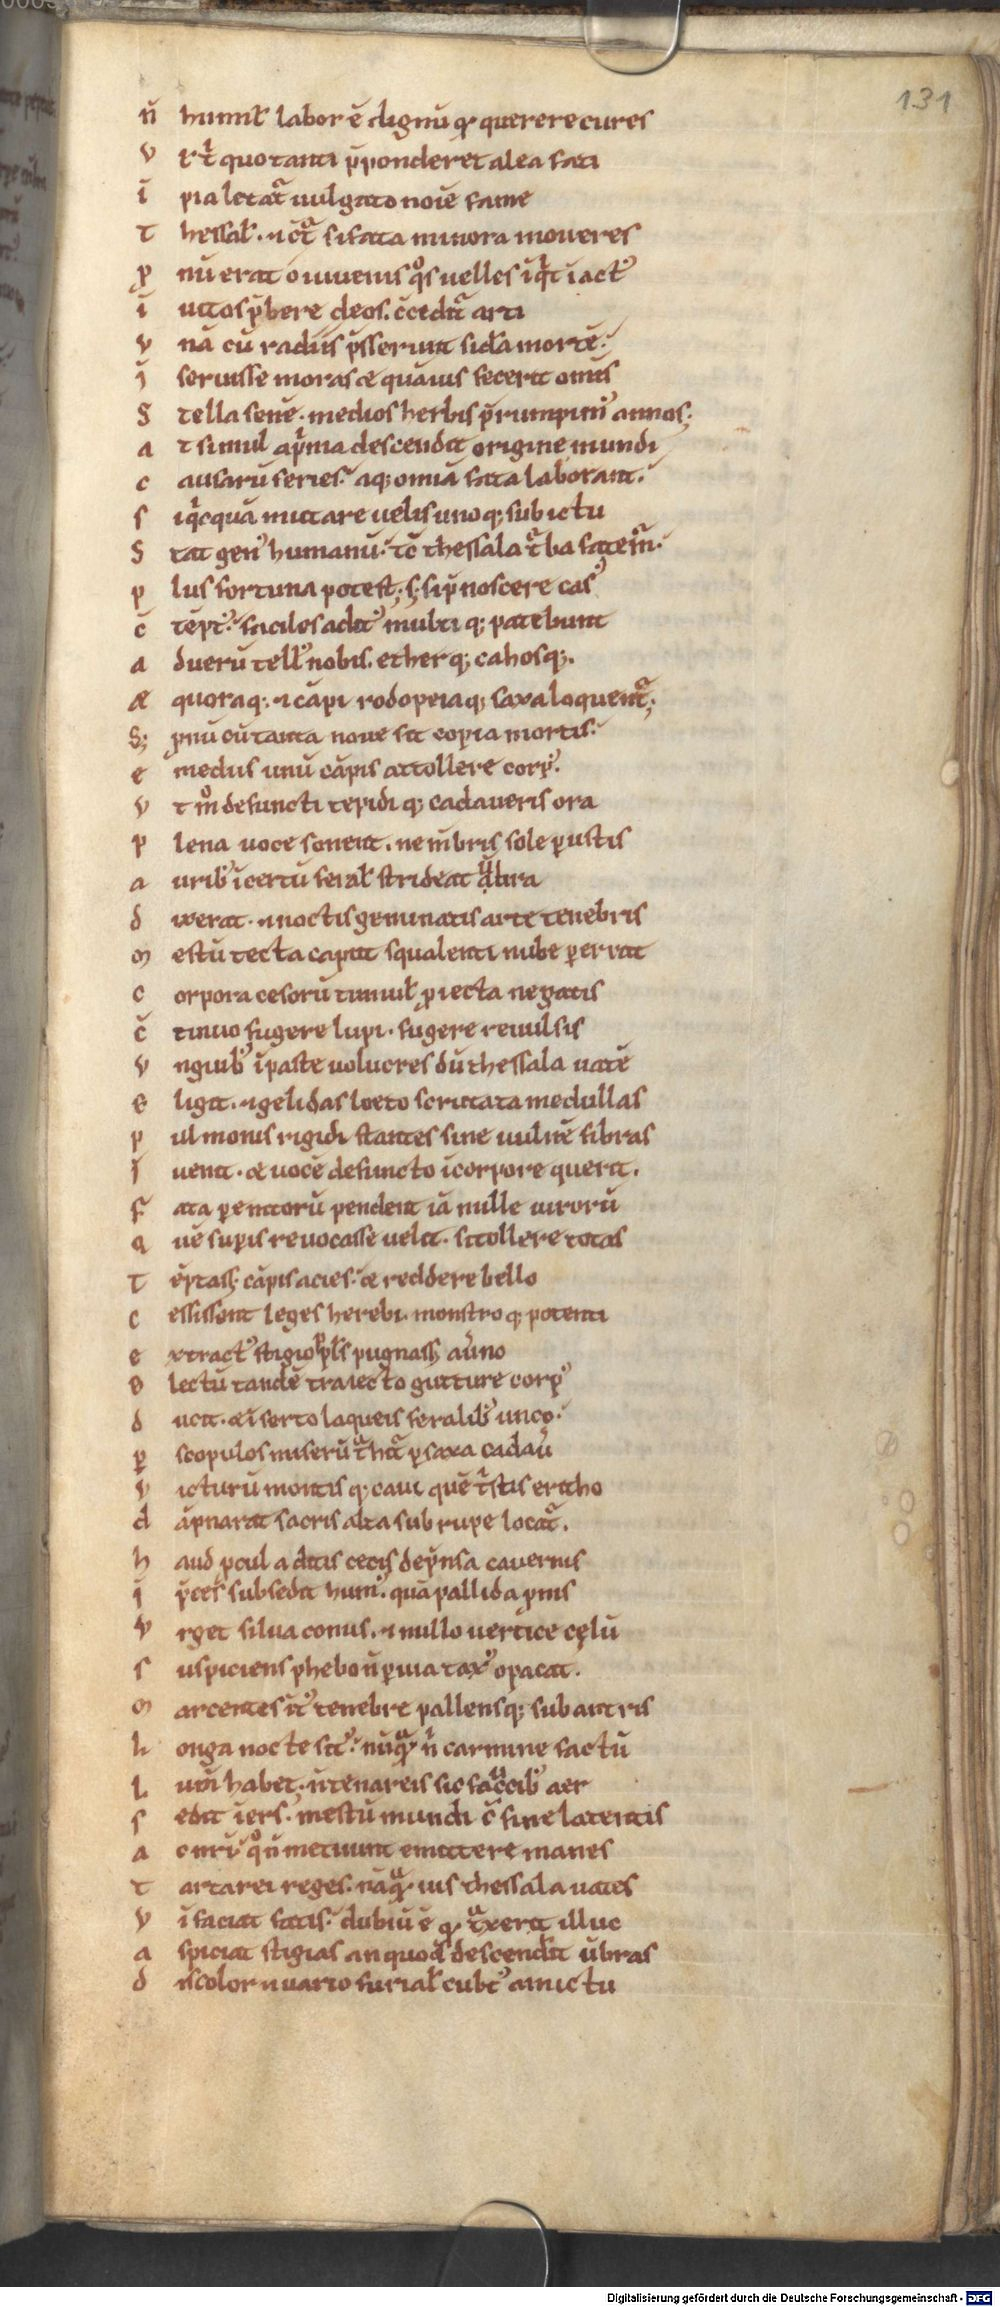 131
n̄ humil̄ labor ē dignū qͥ querere cures
v ir̄t quo tanti p̄ponderet alea fati
ī pia letat᷑ uulgato noīe fame
T hessal̄. ⁊ ctᷓ si fata minora moueres
ꝓ nū erat o iuuenis qͦs uelles inqͥt ī actꝰ
ī uitos p̄bere deos. c̄cedit᷑ arti
v nā cū radiis p̄sserunt sid̄a mortē.
ī seruisse moras æ quāuis fecerit om̄is
S tella senē. medios herbis p̄rumpimꝰ annos;
a t simul ap̄ma descendit origine mundi
c ausarū series. atq; omīa fata laborant.
s iqͥcquā mutare uelis unoq; sub ictu
S tat genꝰ humanū. tc̄ thessala tᷓba fatem᷑.
p lus fortuna potest; s; si p̄noscere casꝰ
c̄ tēptꝰ. faciles aditꝰ multi q; patebunt
a d uerū tellꝰ nobis. ether q; cahosq;.
Æ quoraq;. ⁊ cāpi rodopeiaq; saxa loquent᷑;
S; p̄nū cū tanta noue sit copia mortis.
e mediis unū cāpis attollere corpꝰ.
v t mͦ defuncti tepidi q; cadaueris ora
p lena uoce sonent. ne m̄bris sole p̱ustis
a uribꝰ īcertū feral̄ strideat ūbra
d ixerat. ⁊ noctis geminatis arte tenebris
M estū tecta caput squalenti nube p̱errat
c orpora cesorū tumul̄ ꝓiecta negatis
c̄ tinuo fugere lupi. fugere reuulsis
v nguibꝰ īpaste uolucres dū thessala uatē
e ligit. ⁊ gelidas loeto scrutata medullas
p ulmonis rigidi stantes sine uulnē fibras
ī uenit. æ uocē defuncto ī corpore querit.
F ata p̱emtorū pendent iā mille uirorū
q uē sup̱is reuocasse uelit. si tollere totas
T ēptass; cāpis acies. æ reddere bello
c essissent leges herebi. monstro q; potenti
e xtractꝰ stigio ppl̄s pugnass; au̅no
e lectū tandē traiecto gutture corpꝰ
d ucit. æ īserto laqueis feralibꝰ unco.
p̱ scopulos miserū tᷓhit᷑ p̱ saxa cadau̅
v icturū montis q; caui quē tͥstis erictho
d āpnarat sacris alta sub rupe locat᷑.
h aud ꝓcul a ditis cecis dep̄nsa cauernis
ī p̄ceps subsedit humꝰ. quā pallida ꝓnis
v rget silua comis. ⁊ nullo uertice cęlū
s uspiciens phebo n̄ p̱uia taxꝰ opacat.
M arcentes ītꝰ tenebre pallensq; sub antris
L onga nocte sitꝰ. nūqᷓ n̄ carmine factū
L um̄ habet. n̄ tenareis sic faucibꝰ aer
s edit iers. mestū mundi c̄fine latentis
a c nr̄i. qͦ n̄ metuunt emittere manes
T artarei reges. nāqᷓ uis thessala uates
v ī faciat fatis. dubiū ē qͥ tᷓxerit illuc
a spiciat stigias an quod descenderit ūbras
d iscolor ⁊ uario furial̄ cultꝰ amictu
Digitalisierung gefördert durch die Deutsche Forschungsgemeinschaft - DFG